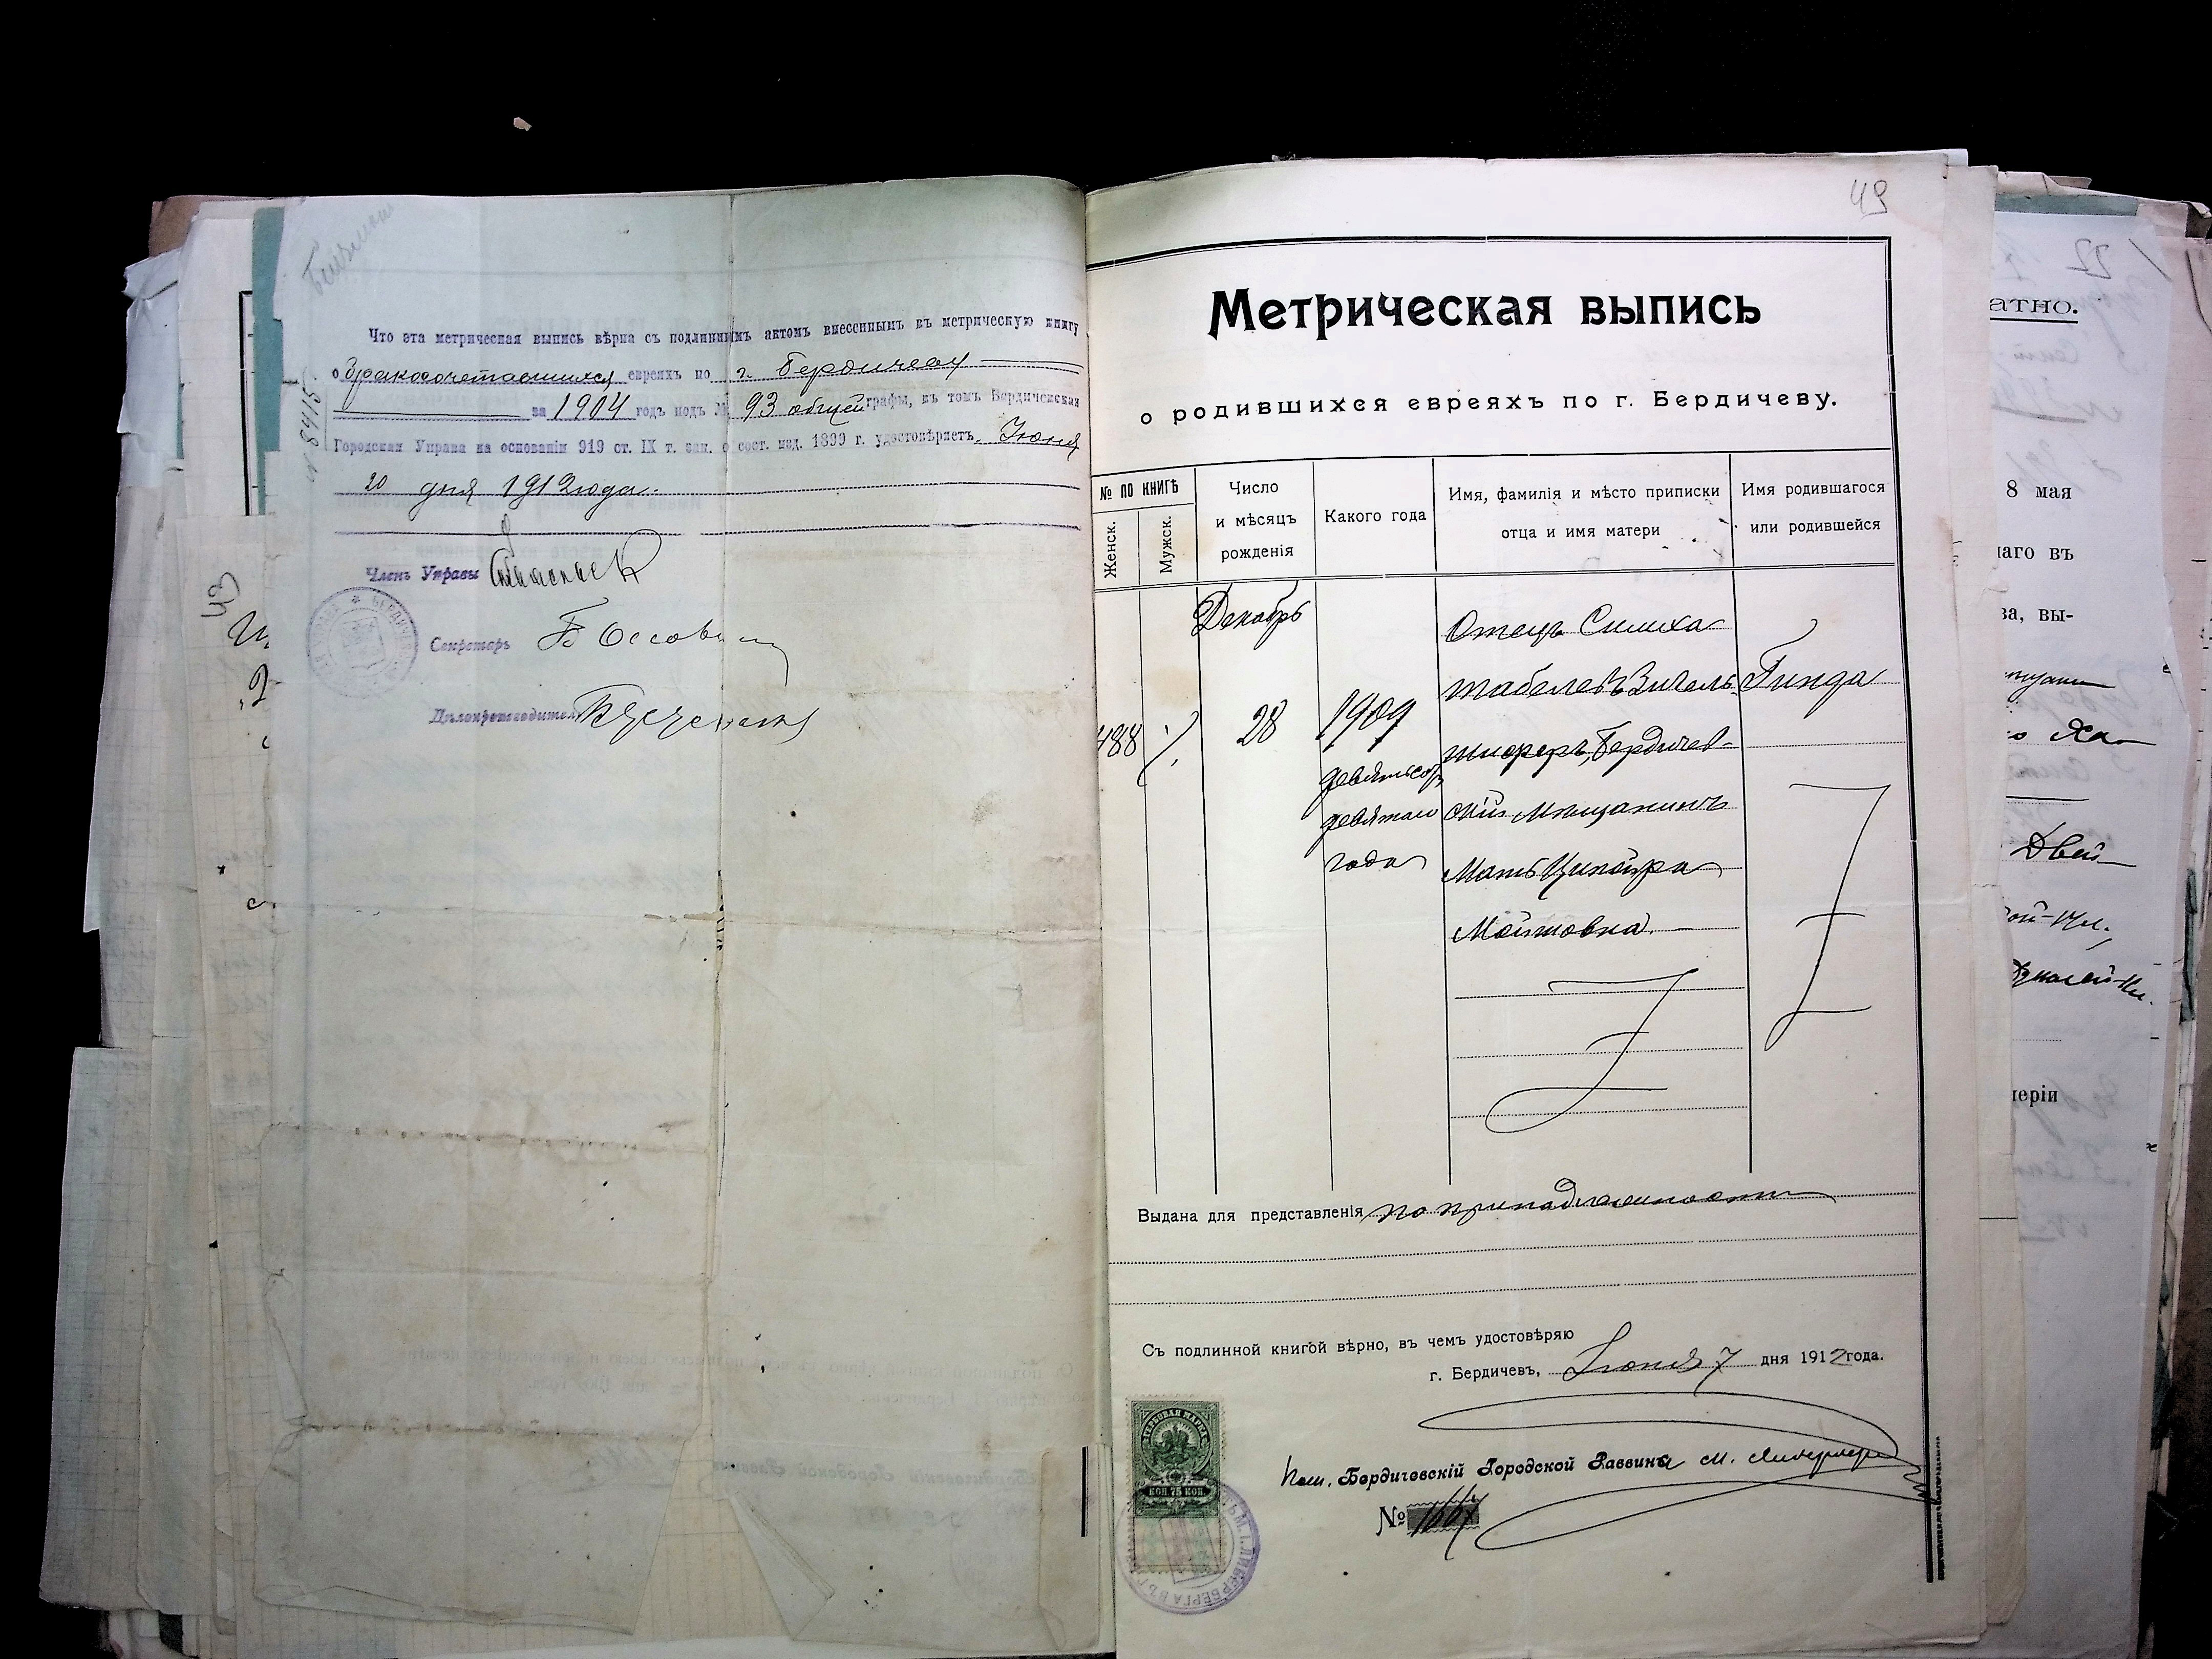 Что эта метрическая выпись вѣрна съ подлиннымъ актомъ внесеннымъ въ метрическую книгу
о бракосочетавшихся евреяхъ по г. Бердичеву
за 1904 годъ подъ № 93 общей графы, въ томъ Бердичевская
Городская Управа на основаніи 919 ст. IX т. зак. о сост. изд. 1899 г. удостовѣряетъ. Іюня
20 дня 1912 года.
№ 8415
Членъ Управы
Секретарь
Дѣлопроизводитель
43
49
Метрическая выпись
о родившихся евреяхъ по г. Бердичеву.
№ ПО КНИГѢ
Женск.
Мужск.
Число
и мѣсяцъ
рожденія
Какого года
Имя, фамилія и мѣсто приписки
отца и имя матери
Имя родившагося
или родившейся
488
Декабрь
28
1909
девятьсотъ
девятаго
года
Отецъ Симха
Шабселевъ Зичель
Бердичев-
скій мѣщанинъ
Мать Ципойра
Мошковна
Гинда
Выдана для представленія по принадлежности
Съ подлинной книгой вѣрно, въ чемъ удостовѣряю
г. Бердичевъ, Іюня 7 дня 1912 года.
Пом. Бердичевскій Городской Раввина М.
№ 1667
ГЕРБОВАЯ МАРКА
КОП 75 КОП
М. І. ЛИВЕРБЕРГА
22
атно.
8 мая
наго въ
ва, вы-
Ха-
Двей-
періи